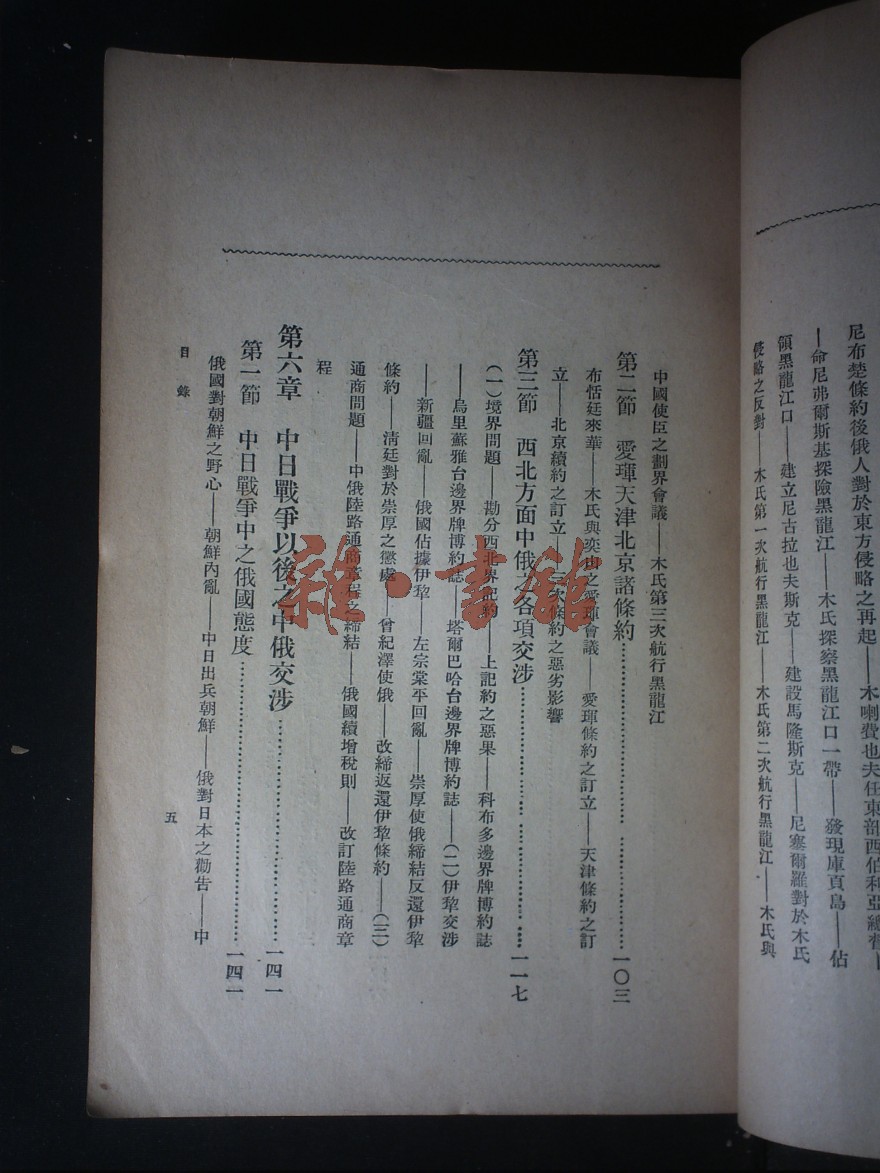 尼布楚條約後俄人對於東方侵略之再起——木喇費也夫任東部西伯利亞總督—
—命尼弗爾斯基探險黑龍江——木氏探察黑龍江口一帶——發現庫頁島——佔
領黑龍江口——建立尼古拉也夫斯克——建設馬隆斯克——尼塞爾羅對於木氏
侵略之反對——木氏第一次航行黑龍江——木氏第二次航行黑龍江——木氏與
中國使臣之劃界會議——木氏第三次航行黑龍江
第二節 愛琿天津北京諸條約……一〇三
布恬廷來華——木氏與奕山之愛琿會議——愛琿條約之訂立——天津條約之訂
立——北京續約之訂立——三次條約之惡劣影響
第三節 西北方面中俄之各項交涉……一一七
(一)境界問題——勘分西北界記約——上記約之惡果——科布多邊界牌博約誌
——烏里蘇雅台邊界牌博約誌——塔爾巴哈台邊界牌博約誌——(二)伊犂交涉
——新疆回亂——俄國佔據伊犂——左宗棠平回亂——崇厚使俄締結反還伊犂
條約——清廷對於崇厚之懲處——曾紀澤使俄——改締返還伊犂條約——(三)
通商問題——中俄陸路通商章程之締結——俄國續增稅則——改訂陸路通商章
程
第六章 中日戰爭以後之中俄交涉……一四一
第一節 中日戰爭中之俄國態度……一四一
俄國對朝鮮之野心——朝鮮內亂——中日出兵朝鮮——俄對日本之勸告——中
目錄
五
雜·書館